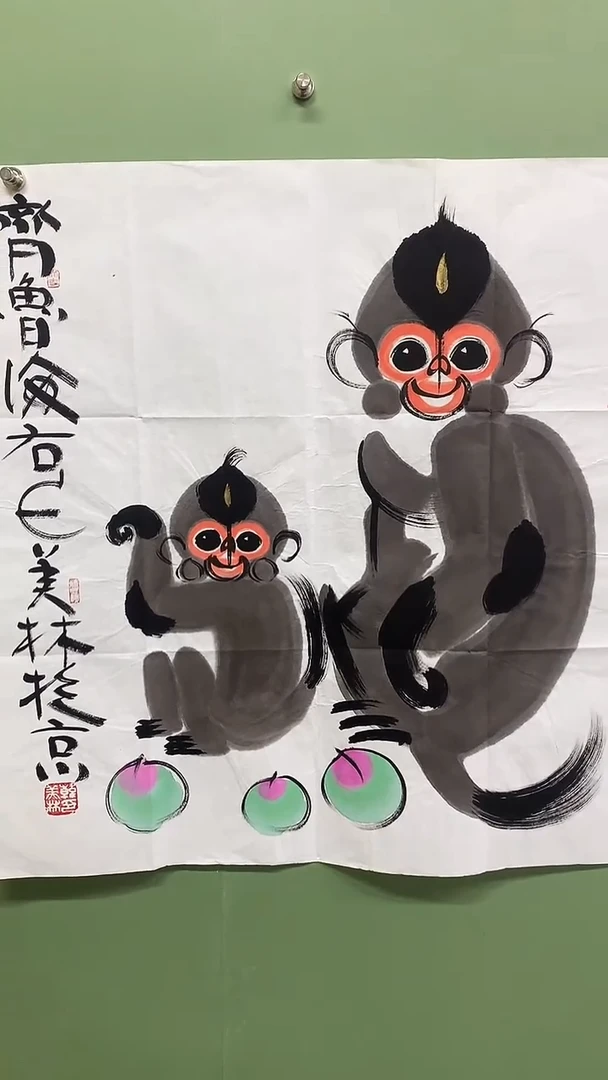 齊魯海右巳美林於京
韓美林印